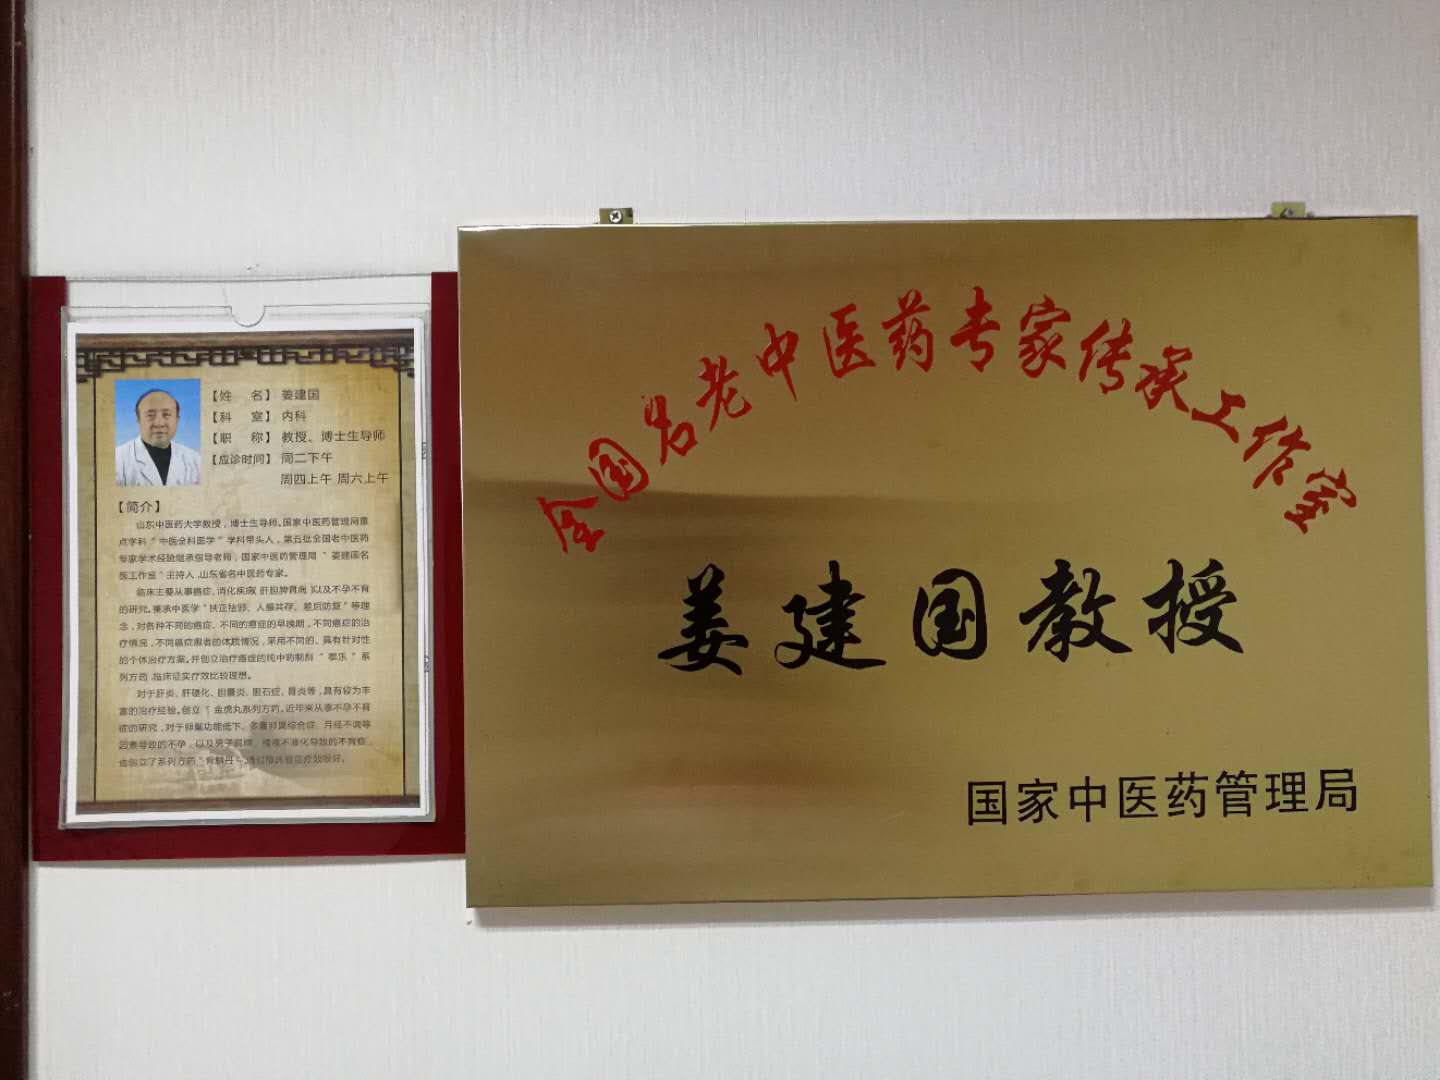 【姓 名】 姜建国
【科 室】 内科
【职 称】 教授、博士生导师
【应诊时间】 周二下午
周四上午 周六上午
【简介】
山东中医药大学教授，博士生导师。国家中医药管理局重
点学科“中医全科医学”学科带头人，第五批全国老中医药
专家学术经验继承指导老师，国家中医药管理局“姜建国名
医工作室”主持人，山东省名中医药专家。
临床主要从事癌症、消化疾病（肝胆脾胃病）以及不孕不育
的研究。秉承中医学“扶正祛邪、人瘤共存、瘥后防复”等理
念，对各种不同的癌症、不同的癌症的早晚期，不同癌症的治
疗情况，不同癌症患者的体质情况，采用不同的、具有针对性
的个体治疗方案。并创立治疗癌症的纯中药制剂“ ”系
列方药，临床证实疗效比较理想。
对于肝炎、肝硬化、胆囊炎、胆石症、胃炎等，具有较为丰
富的治疗经验。创立“金虎丸系列方药。近年来从事不孕不育
症的研究，对于卵巢功能低下、多囊卵巢综合症、月经不调等
因素导致的不孕，以及男子弱精、精液不液化导致的不育症，
也创立了系列方药“ ”，通过临床验证疗效很好。
全国名老中医药专家传承工作室
姜建国教授
国家中医药管理局